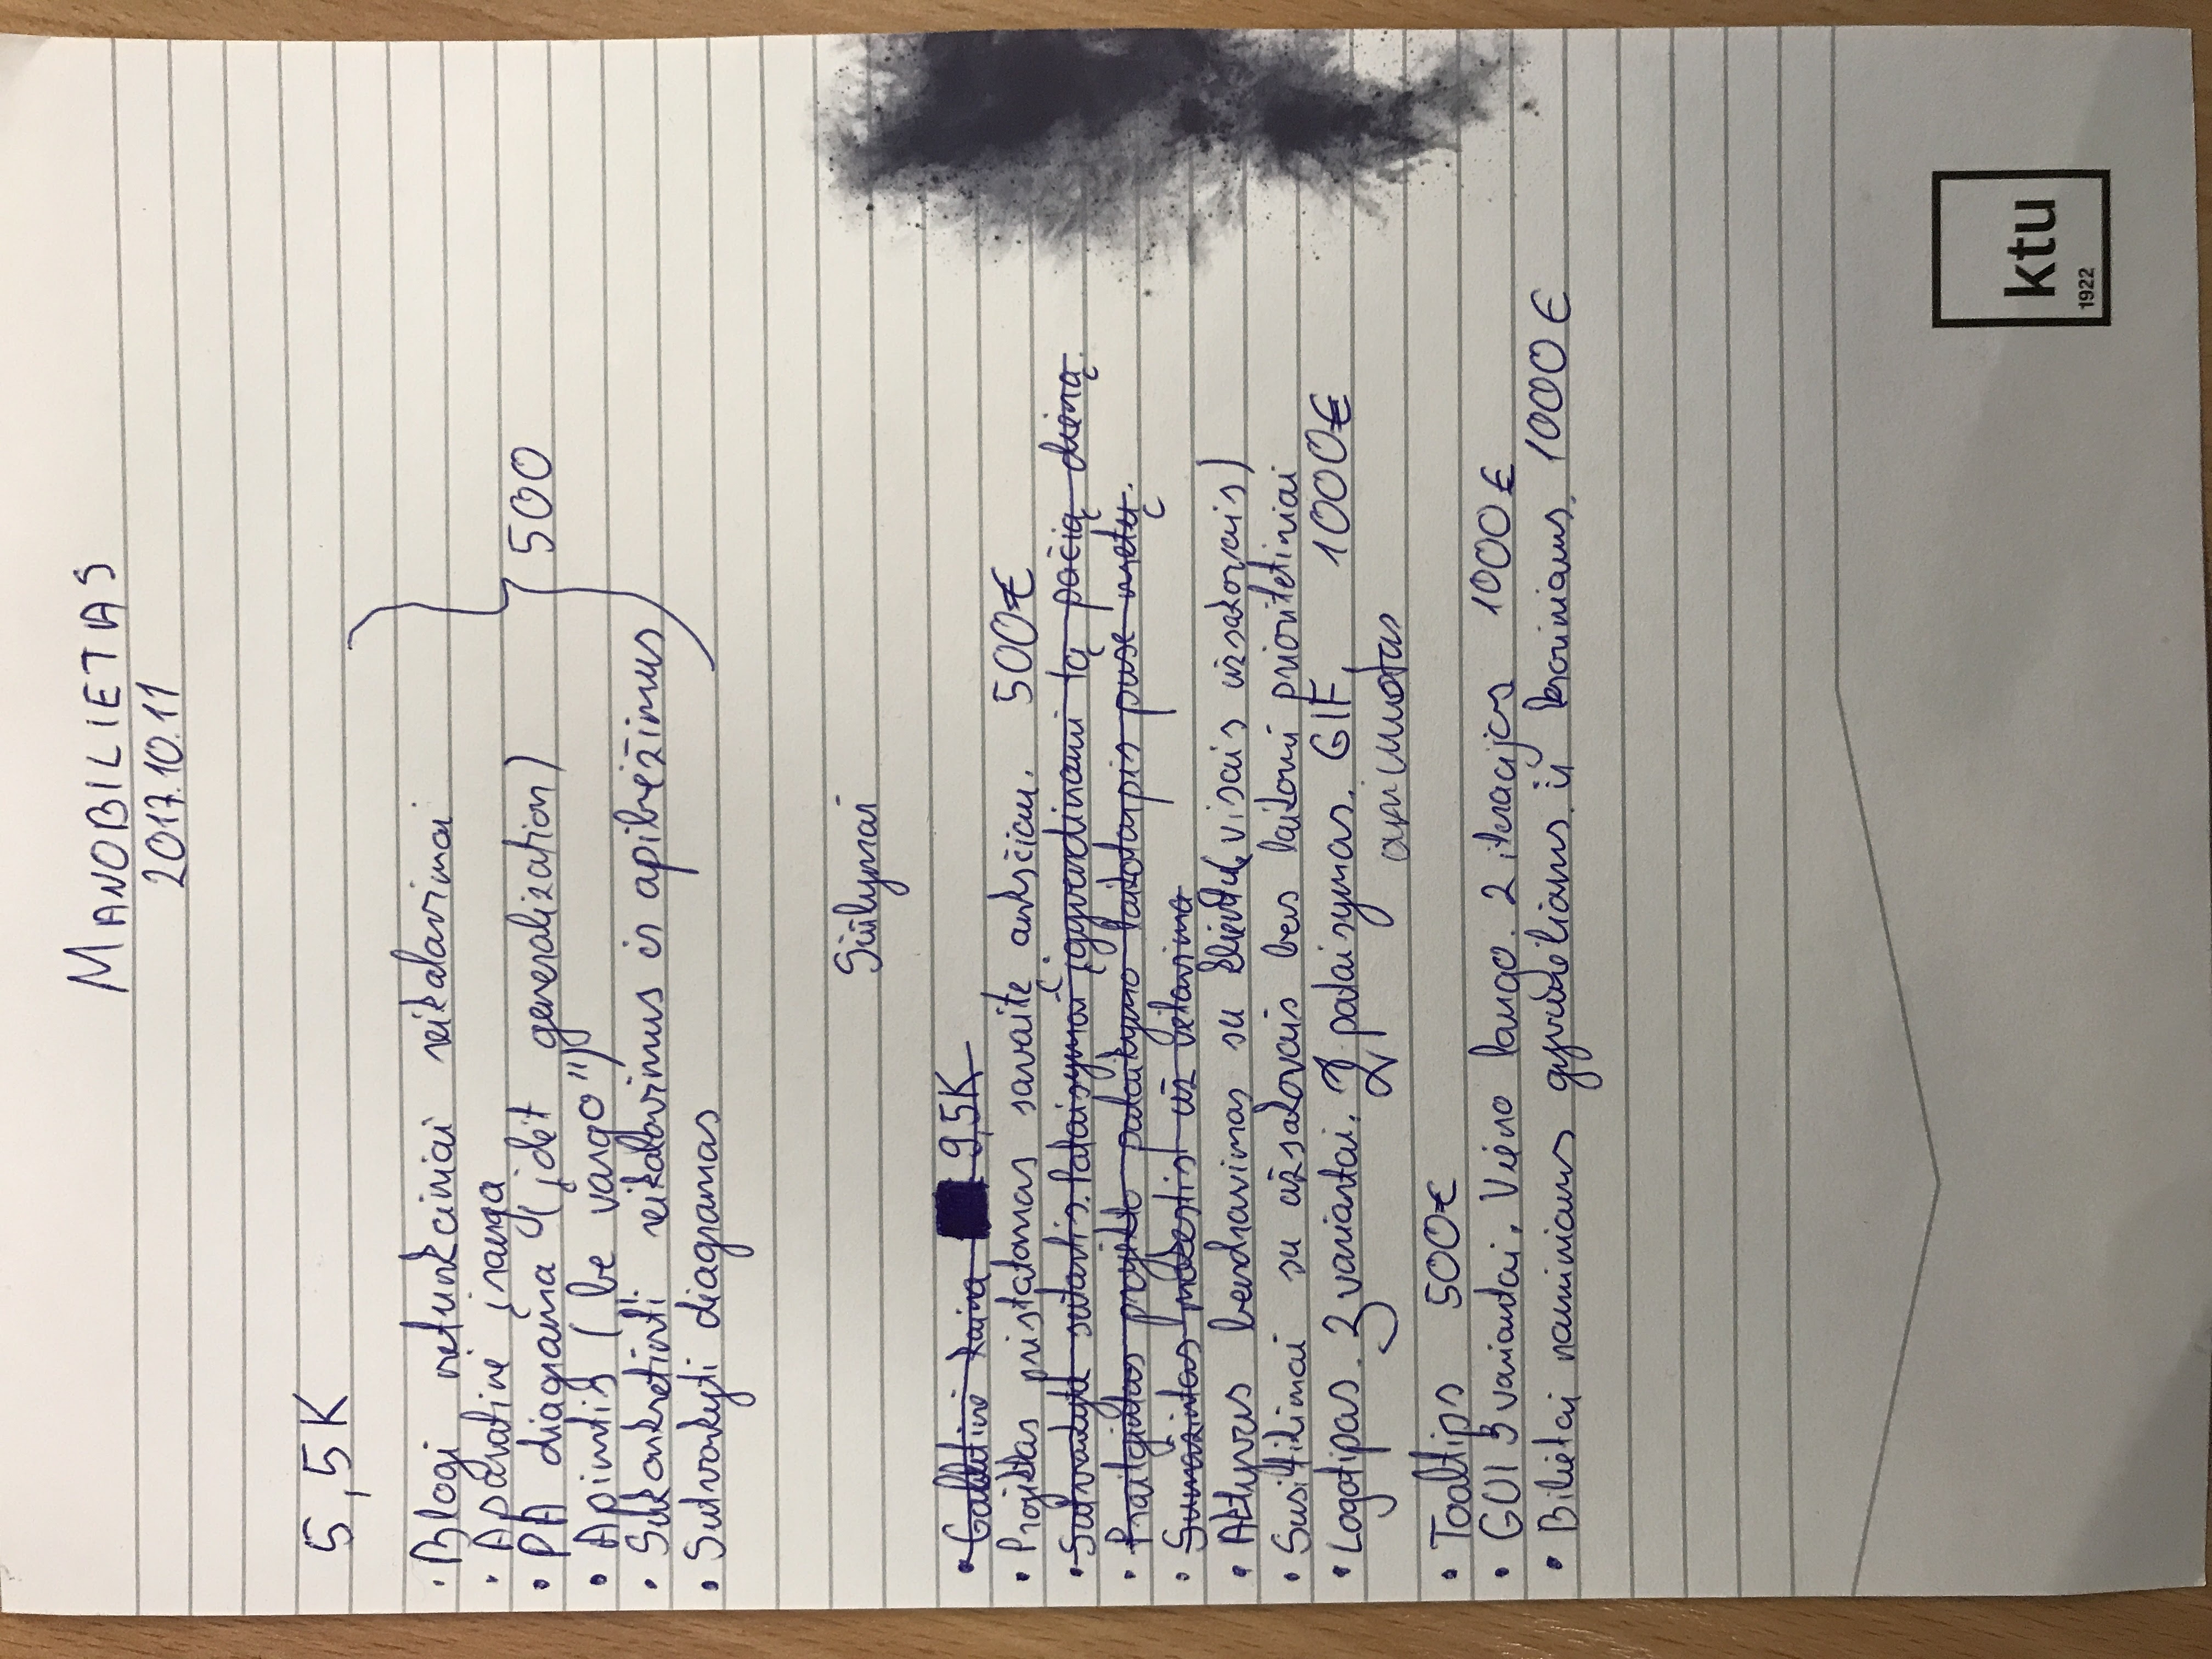 MANOBILIETAS
2017.10.11
5,5K
• Blogi nefunkciniai reikalavimai
• Aparatinė įranga
• PA diagrama (įdėt generalization)
500
• Apimtis („be vargo")
• Sukonkretinti reikalavimus ir apibrėžimus
• Sutvarkyti diagramas
Siūlymai
• Galutinė kaina 9,5K
• Projektas pristatomas savaitę anksčiau. 500€
• Sutvarkyta sutartis. Pataisymai įgyvendinami tą pačią dieną.
• Prailgintas projekto palaikymo laikotarpis puse metų.
• Sumažintas mokestis už vėlavimą
• Aktyvus bendravimas su klientu (visais užsakovais)
• Susitikimai su užsakovais bus laikomi prioritetiniai
• Logotipas. 3 variantai. 2 pataisymas. GIF, 1000€
animuotas
• Tooltips 500€
• GUI 3 variantai. Vieno lango. 2 iteracijos 1000€
• Bilietai naminiams gyvūnėliams ir 1000€
ktu
1922